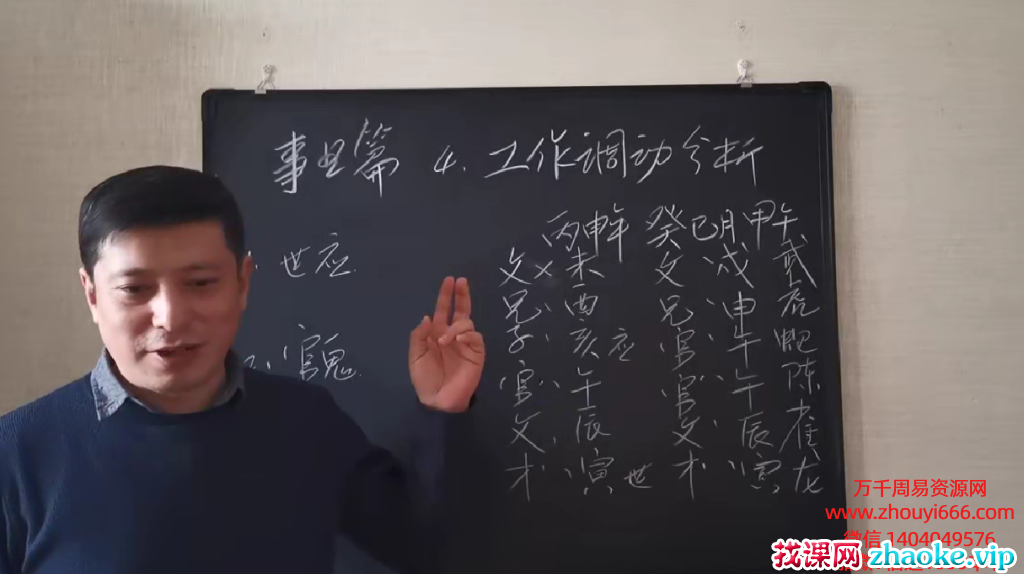 事业篇 4. 工作调动分析
丙申年 癸巳月 甲午
世应
官鬼
父 × 未 父 戌 武
兄 酉 兄 申 虎
子 亥 应 官 午 蛇
官 午 官 午 陈
父 辰 父 辰 雀
才 寅 世 才 寅 龙
万千周易资源网
www.zhouyi666.com
微信 1404049576
找课网 zhaoke.vip